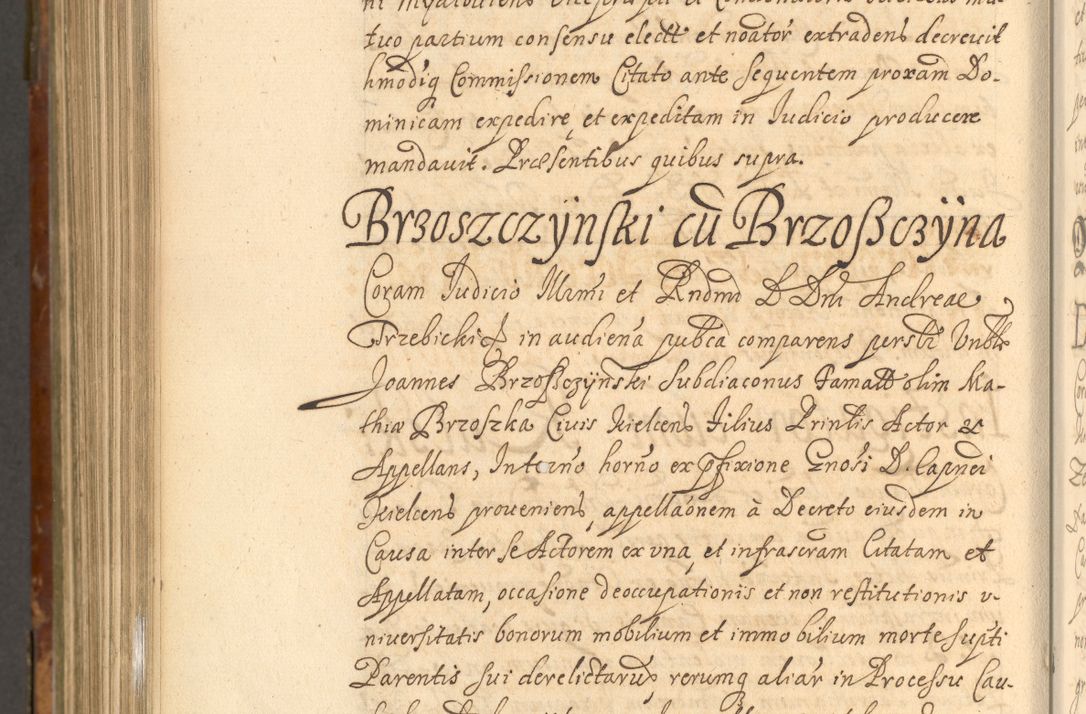 tuo partium consensu electt et noător extradens decrevit
hmōdiq Commissionem Citato ante sequentem proxam Do-
minicam expedire, et expeditam in Iudicio producere
mandavit. Præsentibus quibus supra.
Brzoszczÿnski cū Brzoßczÿna
Coram Iudicio Illmi et Rndmi D Dni Andreae
Trzebicki in audiena pubca comparens persli Vnble
Joannes Brzoßczÿnski Subdiaconus Famatt olim Ma-
thiæ Brzoszka Civis Kielcens Filius Prinlis Actor &
Appellans, In termo horno ex pfixione Gnosi D. Capnei
Kielcens proveniens, appellaonem à Decreto eiusdem in
Causa inter se Actorem ex vna, et infrascram Citatam et
Appellatam, occasione deoccupationis et non restitutionis v-
niversitatis bonorum mobilium et immobilium morte supti
Parentis sui derelictarum rerumq aliar in Processu Cau-